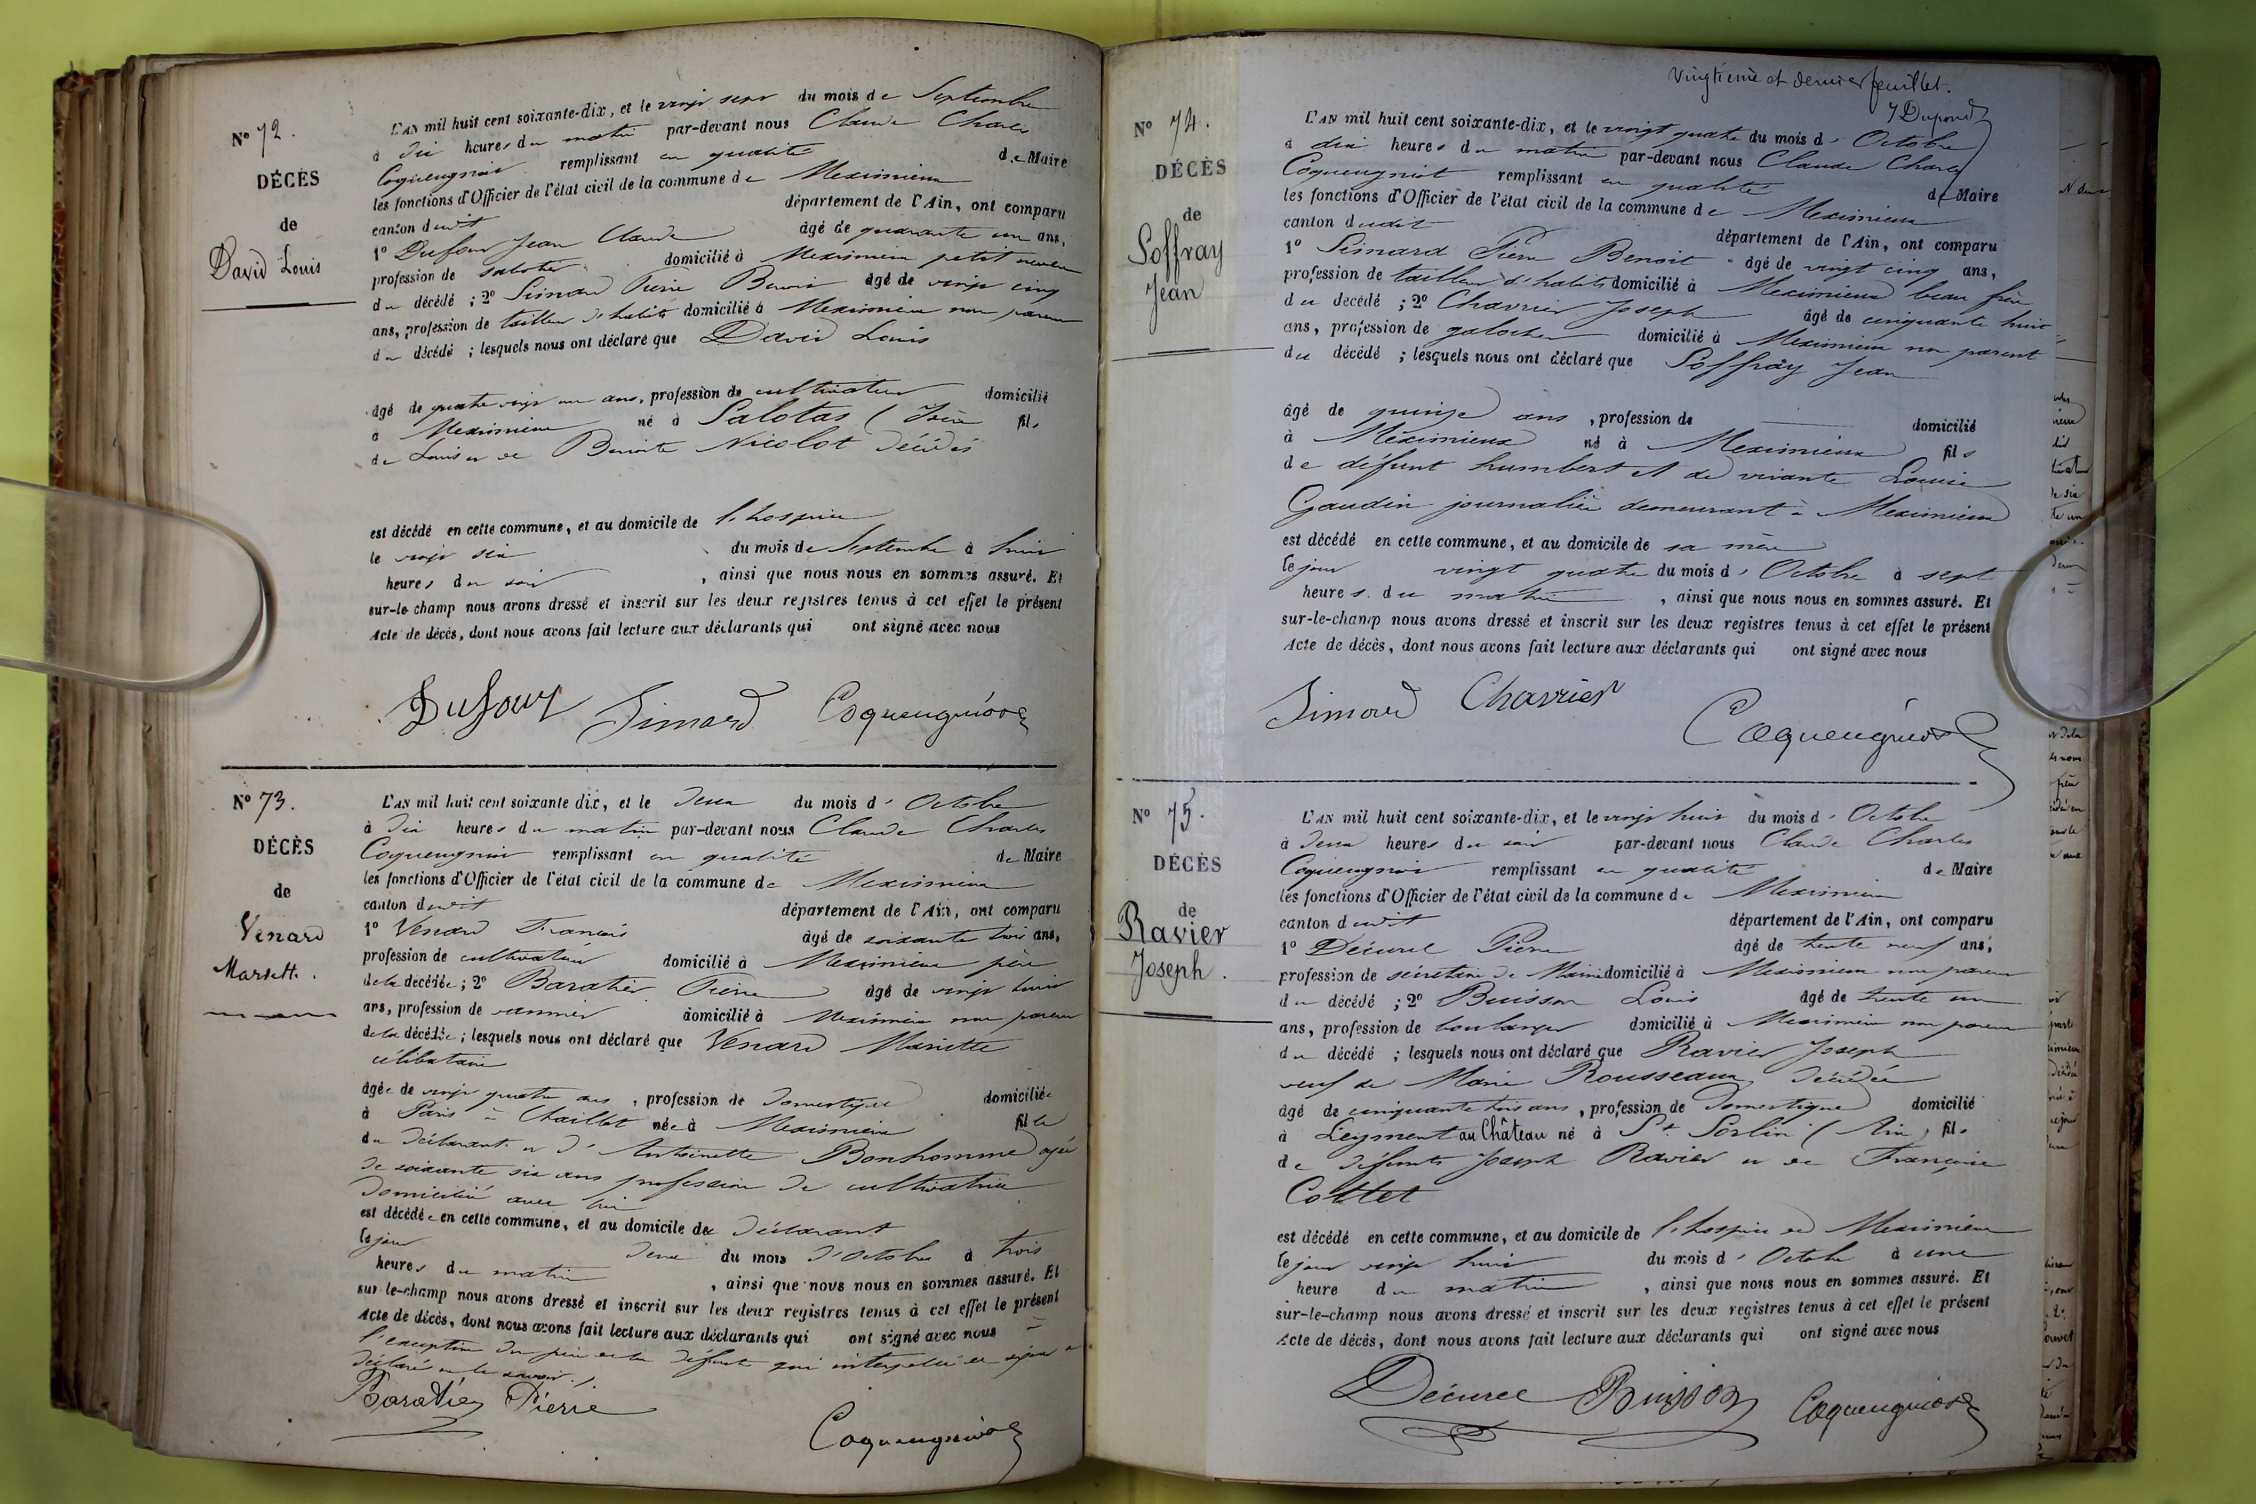 N° 72.
DÉCÈS
de
David Louis
L'AN mil huit cent soixante-dix, et le vingt sept du mois de Septembre
à dix heures du matin par-devant nous Claude Charles
Coquengniot remplissant en qualité de Maire
les fonctions d'Officier de l'état civil de la commune de Meximieux
canton dudit département de l'Ain, ont comparu
1° Dufour Jean Claude âgé de quarante un ans,
profession de sabotier domicilié à Meximieux petit neveu
du décédé ; 2° Simard Pierre Benoit âgé de vingt cinq
ans, profession de tailleur d'habits domicilié à Meximieux non parent
du décédé ; lesquels nous ont déclaré que David Louis
âgé de quatre vingt un ans, profession de cultivateur domicilié
à Meximieux né à Salotas (Isère fils
de Louis et de Benoite Nicolot décédés
est décédé en cette commune, et au domicile de l'hospice
le vingt six du mois de Septembre à huit
heures du soir , ainsi que nous nous en sommes assuré. Et
sur-le champ nous avons dressé et inscrit sur les deux registres tenus à cet effet le présent
Acte de décès, dont nous avons fait lecture aux déclarants qui ont signé avec nous
Dufour Simard Coquengniot
N° 73.
DÉCÈS
de
Venard
Mariette.
L'AN mil huit cent soixante dix, et le deux du mois d' Octobre
à dix heures du matin par-devant nous Claude Charles
Coquengniot remplissant en qualité de Maire
les fonctions d'Officier de l'état civil de la commune de Meximieux
canton dudit département de l'Ain, ont comparu
1° Venard François âgé de soixante trois ans,
profession de cultivateur domicilié à Meximieux père
de la décédée ; 2° Baratier Pierre âgé de vingt huit
ans, profession de vannier domicilié à Meximieux non parent
de la décédée ; lesquels nous ont déclaré que Venard Mariette
célibataire
âgée de vingt quatre ans , profession de domestique domiciliée
à Paris à Chaillot née à Meximieux fille
du déclarant et d'Antoinette Bonhomme âgée
de soixante six ans profession de cultivatrice
domiciliée avec lui
est décédée en cette commune, et au domicile de déclarant
le jour deux du mois d'Octobre à trois
heures du matin , ainsi que nous nous en sommes assuré. Et
sur-le-champ nous avons dressé et inscrit sur les deux registres tenus à cet effet le présent
Acte de décès, dont nous avons fait lecture aux déclarants qui ont signé avec nous à
l'exception du père de la défunte qui interpellé de signer a
déclaré ne le savoir.
Baratier Pierre
Coquengniot
Vingtième et dernier feuillet.
Dupond
N° 74.
DÉCÈS
de
Soffray
Jean
L'AN mil huit cent soixante-dix, et le vingt quatre du mois d' Octobre
à dix heures du matin par-devant nous Claude Charles
Coquengniot remplissant en qualité de Maire
les fonctions d'Officier de l'état civil de la commune de Meximieux
canton dudit département de l'Ain, ont comparu
1° Simard Pierre Benoit âgé de vingt cinq ans,
profession de tailleur d'habits domicilié à Meximieux beau frère
du décédé ; 2° Chavrier Joseph âgé de cinquante huit
ans, profession de galocher domicilié à Meximieux non parent
du décédé ; lesquels nous ont déclaré que Soffray Jean
âgé de quinze ans , profession de domicilié
à Méximieux né à Meximieux fils
de défunt humbert et de vivante Louise
Gaudin journalière demeurant à Meximieux
est décédé en cette commune, et au domicile de sa mère
le jour vingt quatre du mois d' Octobre à sept
heures du matin , ainsi que nous nous en sommes assuré. Et
sur-le-champ nous avons dressé et inscrit sur les deux registres tenus à cet effet le présent
Acte de décès, dont nous avons fait lecture aux déclarants qui ont signé avec nous
Simard Chavrier
Coquengniot
N° 75.
DÉCÈS
de
Ravier
Joseph.
L'AN mil huit cent soixante-dix, et le vingt huit du mois d' Octobre
à deux heures du soir par-devant nous Claude Charles
Coquengniot remplissant en qualité de Maire
les fonctions d'Officier de l'état civil de la commune de Meximieux
canton dudit département de l'Ain, ont comparu
1° Décurel Pierre âgé de trente neuf ans,
profession de sécrétaire de Mairie domicilié à Meximieux non parent
du décédé ; 2° Buisson Louis âgé de trente un
ans, profession de boulanger domicilié à Meximieux non parent
du décédé ; lesquels nous ont déclaré que Ravier Joseph
veuf de Marie Rousseaux décédée
âgé de cinquante trois ans , profession de domestique domicilié
à Leyment au Château né à St. Sorlin (Ain) fils
de défunts Joseph Ravier et de Françoise
Cottet
est décédé en cette commune, et au domicile de l'hospice de Meximieux
le jour vingt huit du mois d' Octobre à une
heure du matin , ainsi que nous nous en sommes assuré. Et
sur-le-champ nous avons dressé et inscrit sur les deux registres tenus à cet effet le présent
Acte de décès, dont nous avons fait lecture aux déclarants qui ont signé avec nous
Décurel Buisson Coquengniot